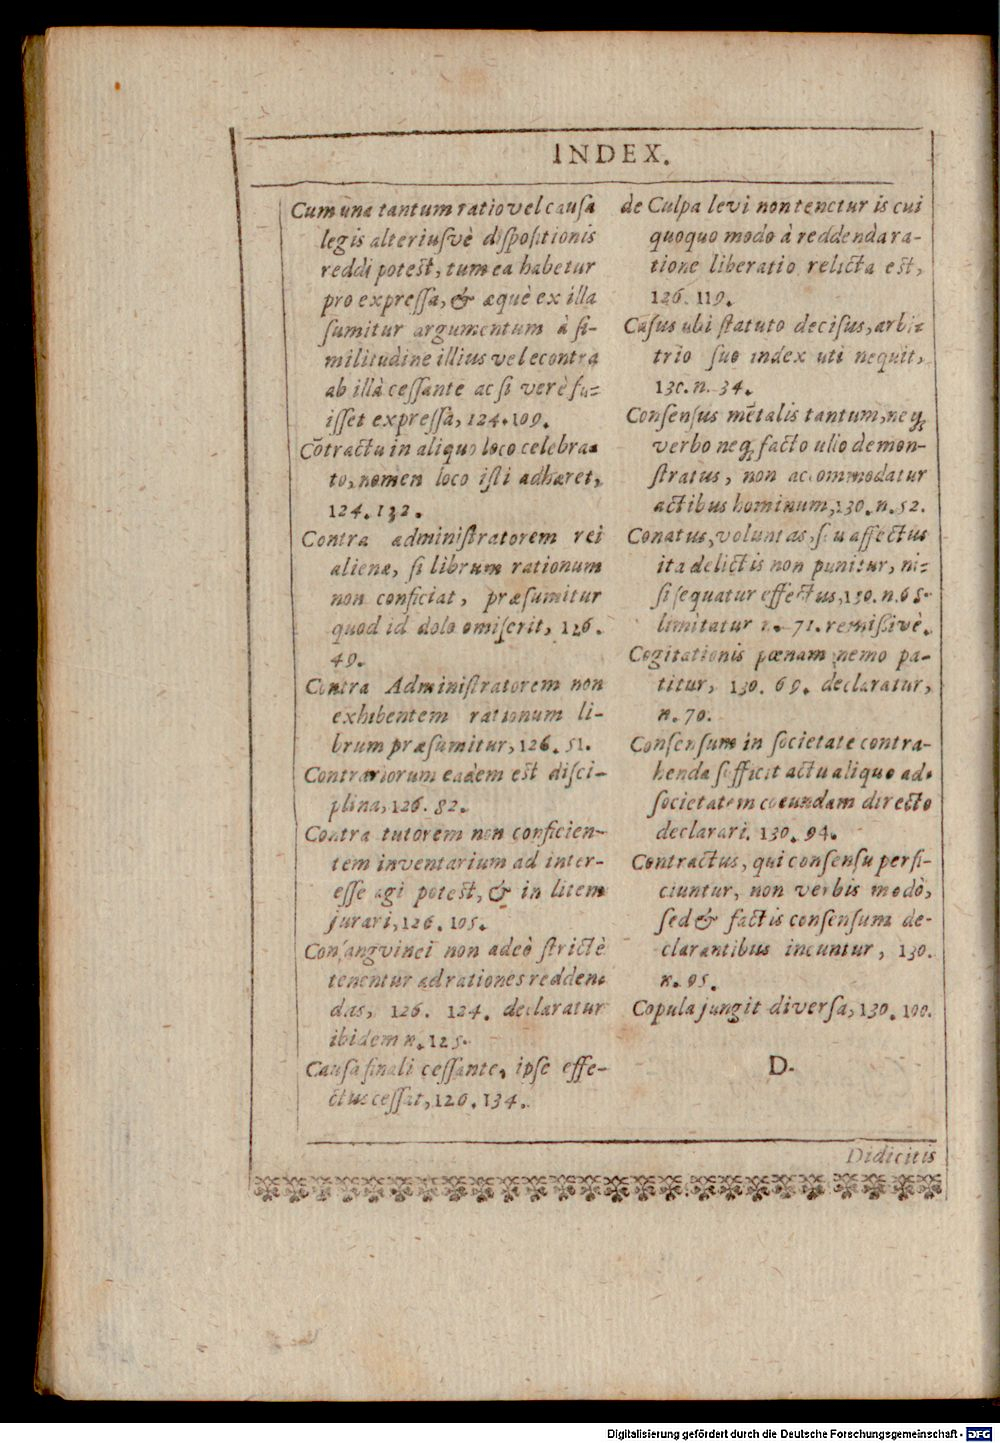 INDEX.
Cum una tantum ratio vel causa
legis alteriusvè dispositionis
reddi potest, tum ea habetur
pro expressa, & æquè ex illa
sumitur argumentum à si-
militudine illius vel econtra
ab illà cessante ac si verè fu-
isset expressa, 124. 109.
Cõtractu in aliquo loco celebra-
to, nomen loco isti adhæret,
124. 132.
Contra administratorem rei
alienæ, si librum rationum
non conficiat, præsumitur
quod id dolo omiserit, 126.
49.
Contra Administratorem non
exhibentem rationum li-
brum præsumitur, 126. 51.
Contrariorum eadem est disci-
plina, 126. 82.
Contra tutorem non conficien-
tem inventarium ad inter-
esse agi potest, & in litem
jurari, 126. 105.
Consangvinei non adeò strictè
tenentur ad rationes redden-
das, 126. 124. declaratur
ibidem n. 125.
Causa finali cessante, ipse effe-
ctus cessat, 126. 134.
de Culpa levi non tenetur is cui
quoquo modo à reddendà ra-
tione liberatio relicta est,
126. 119.
Casus ubi statuto decisus, arbi-
trio suo index uti nequit,
130. n. 34.
Consensus mẽtalis tantum, neq;
verbo neq; facto ullo demon-
stratus, non accommodatur
actibus hominum, 130. n. 52.
Conatus, voluntas, seu affectus
ita delictis non punitur, ni-
si sequatur effectus, 130. n. 65.
limitatur n. 71. remissivè.
Cogitationis pœnam nemo pa-
titur, 130. 69. declaratur,
n. 70.
Consensum in societate contra-
henda sufficit actu aliquo ad
societatem coeundam directo
declarari. 130. 94.
Contractus, qui consensu perfi-
ciuntur, non verbis modò,
sed & factis consensum de-
clarantibus incuntur, 130.
n. 95.
Copula jungit diversa, 130. 100.
D.
Didicitis
Digitalisierung gefördert durch die Deutsche Forschungsgemeinschaft - DFG